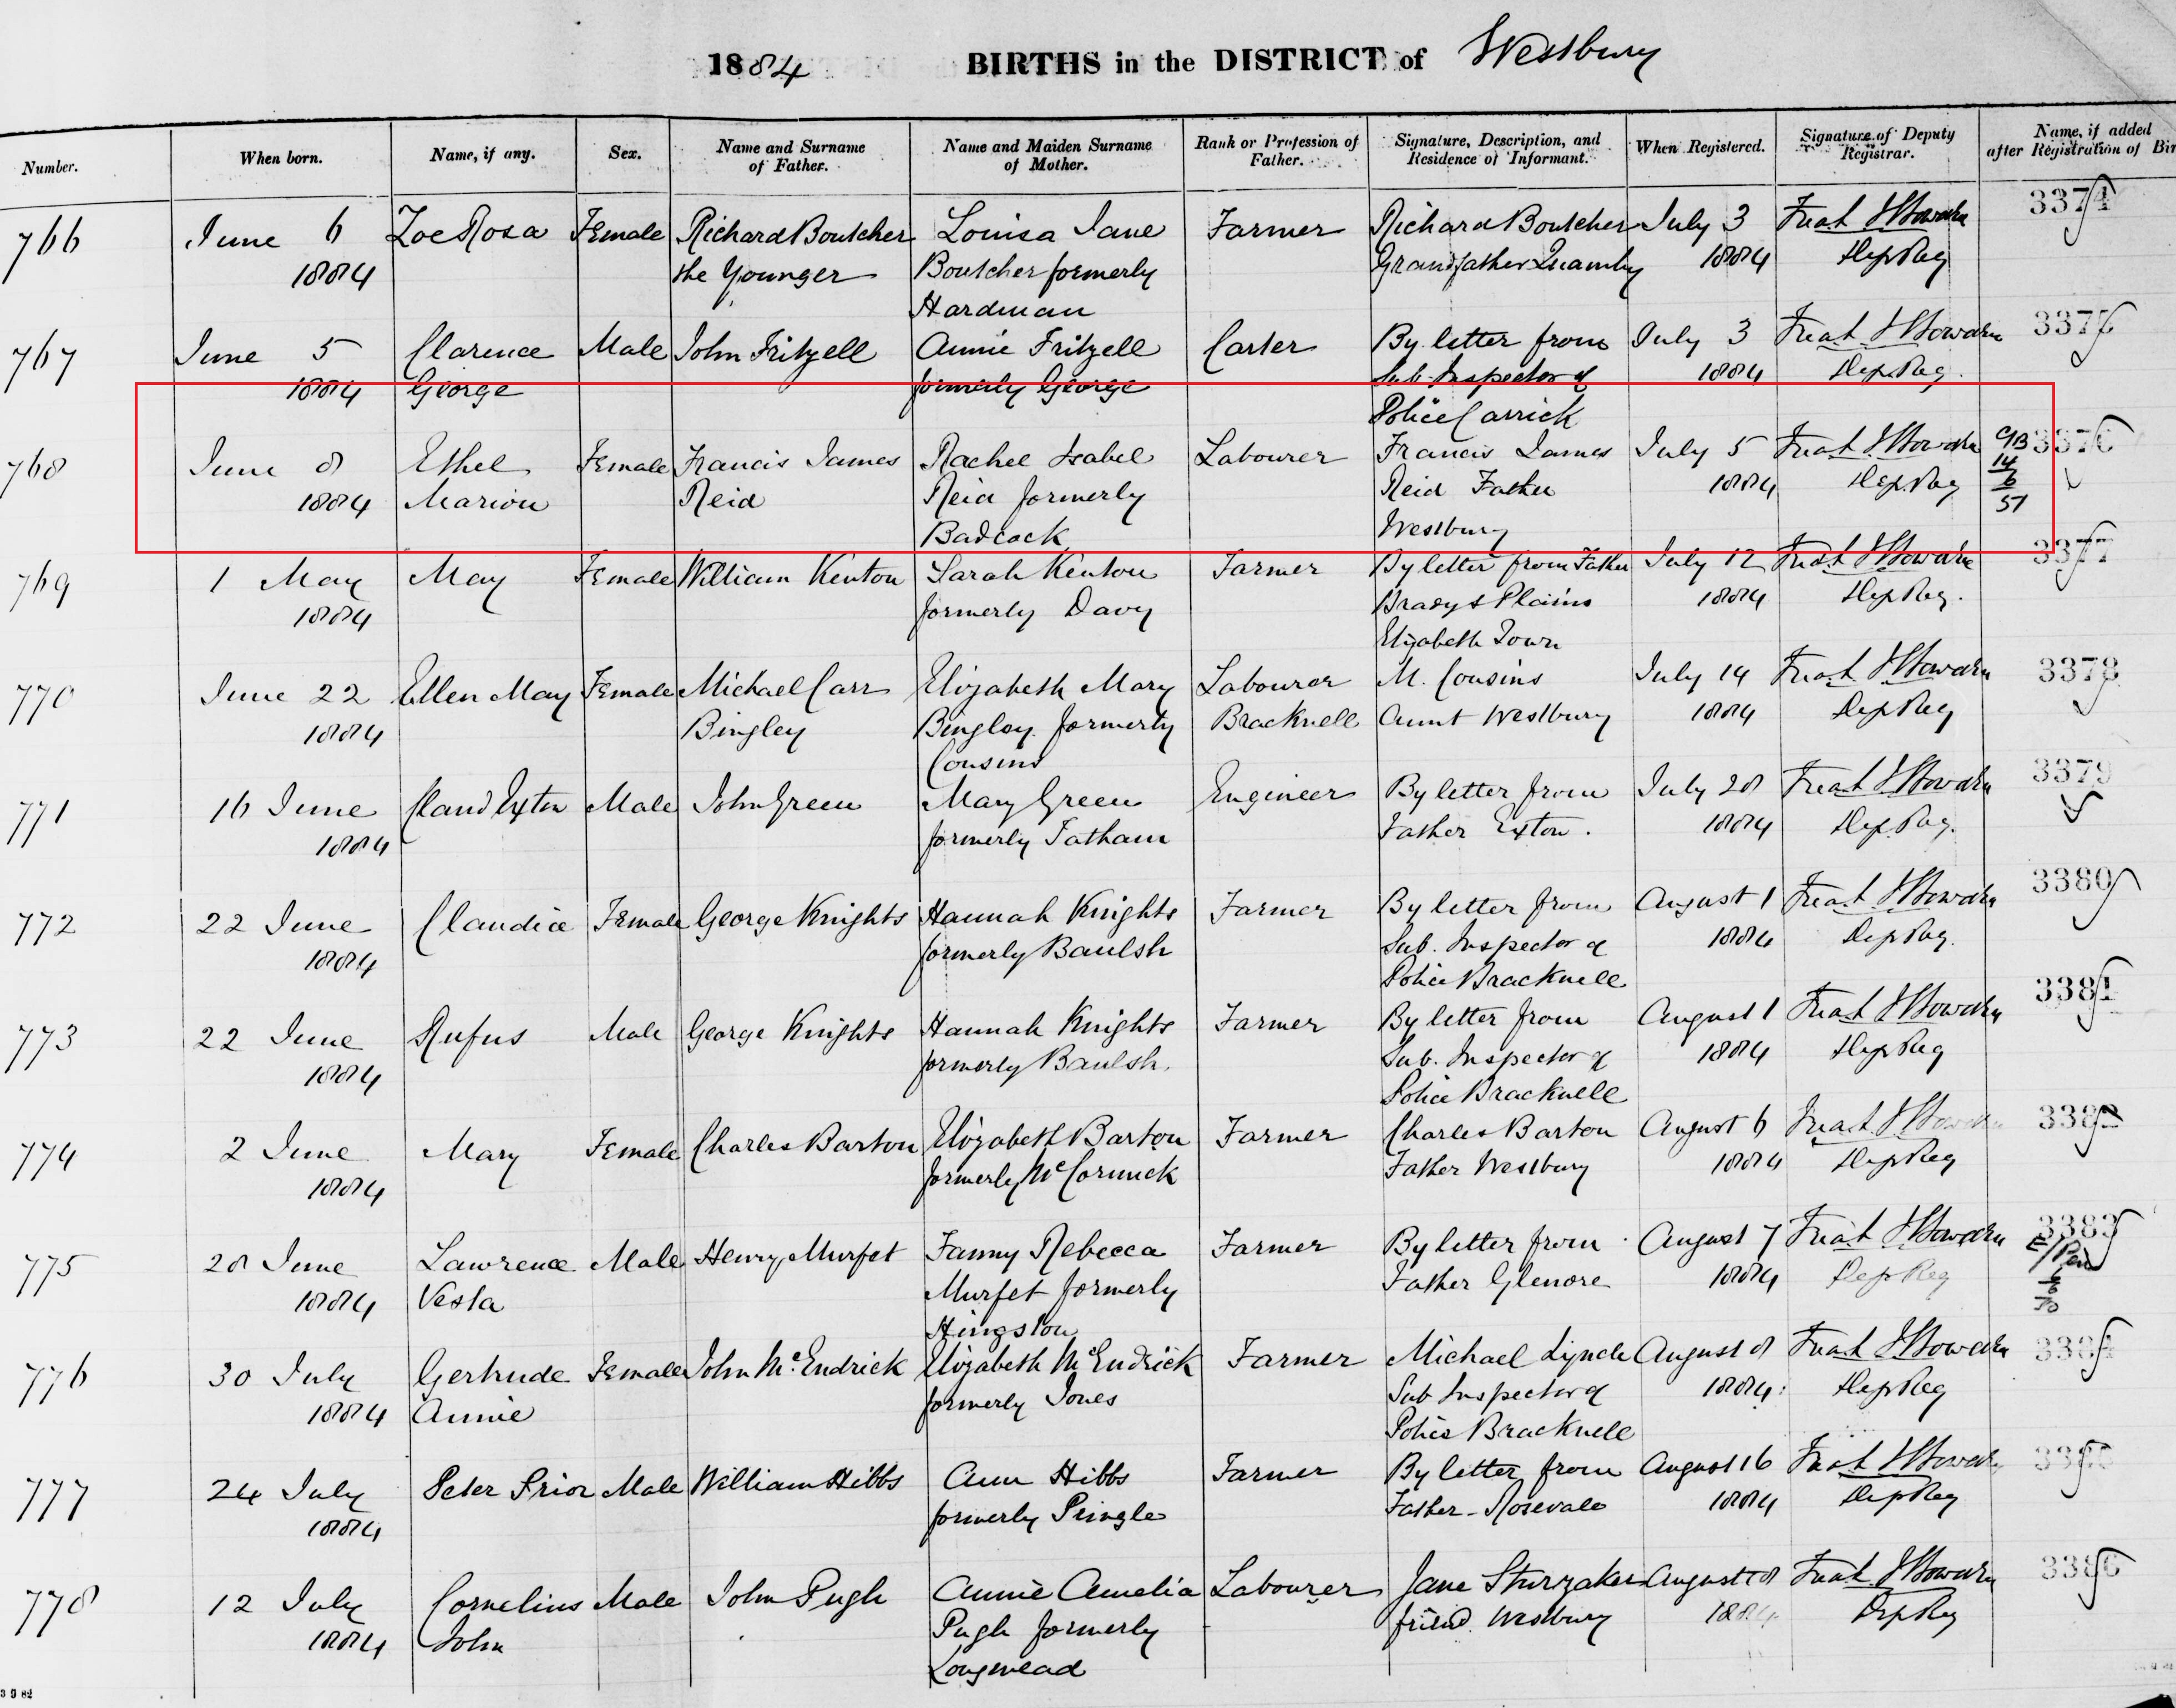 1884 BIRTHS in the DISTRICT of Westbury
Number. When born. Name, if any. Sex. Name and Surname of Father. Name and Maiden Surname of Mother. Rank or Profession of Father. Signature, Description, and Residence of Informant. When Registered. Signature of Deputy Registrar. Name, if added after Registration of Bir
766 June 6 Zoe Rosa Female Richard Boutcher Louisa Jane Farmer Richard Boutcher July 3 3374
1884 the Younger Boutcher formerly Grandfather Quamby 1884 Dep Reg
Hardman
767 June 5 Clarence Male John Fritzell Annie Fritzell Carter By letter from July 3 3375
1884 George formerly George Sub-Inspector of 1884 Dep Reg.
Police Carrick
768 June 8 Ethel Female Francis James Rachel Isabel Labourer Francis James July 5 3376
1884 Marion Reid Reid formerly Reid Father 1884 Dep. Reg
Badcock Westbury
14
6
51
769 1 May May Female William Kenton Sarah Kenton Farmer By letter from Father July 12 3377
1884 formerly Davy Plains 1884 Dep Reg.
Elizabeth Town
770 June 22 Ellen May Female Michael Carr Elizabeth Mary Labourer M. Cousins July 14 3378
1884 Bingley Bingley formerly Bracknell Aunt Westbury 1884 Dep Reg
Cousins
771 16 June Claud Exton Male John Green Mary Green Engineer By letter from July 28 3379
1884 formerly Tatham Father Exton. 1884 Dep. Reg.
772 22 June Claudice Female George Knights Hannah Knights Farmer By letter from August 1 3380
1884 formerly Baulsh Sub. Inspector of 1884 Dep Reg.
Police Bracknell
773 22 June Rufus Male George Knights Hannah Knights Farmer By letter from August 1 3381
1884 formerly Baulsh. Sub. Inspector of 1884 Dep Reg
Police Bracknell
774 2 June Mary Female Charles Barton Elizabeth Barton Farmer Charles Barton August 6 3382
1884 formerly McCormick Father Westbury 1884 Dep Reg
775 28 June Lawrence Male Henry Murfet Fanny Rebecca Farmer By letter from August 7 3383
1884 Vesta Murfet formerly Father Glenore 1884 Dep Reg
Hingston
776 30 July Gertrude Female John McEndrick Elizabeth McEndrick Farmer Michael Lynch August 8 3384
1884 Annie formerly Jones Sub Inspector of 1884 Dep Reg
Police Bracknell
777 24 July Peter Prior Male William Hibbs Ann Hibbs Farmer By letter from August 16 3385
1884 formerly Pringle Father - Rosevale 1884 Dep Reg
778 12 July Cornelius Male John Pugh Annie Amelia Labourer Jane Sturzaker August 18 3386
1884 John Pugh formerly friend Westbury 1884 Dep Reg
Longmead
3 9 82